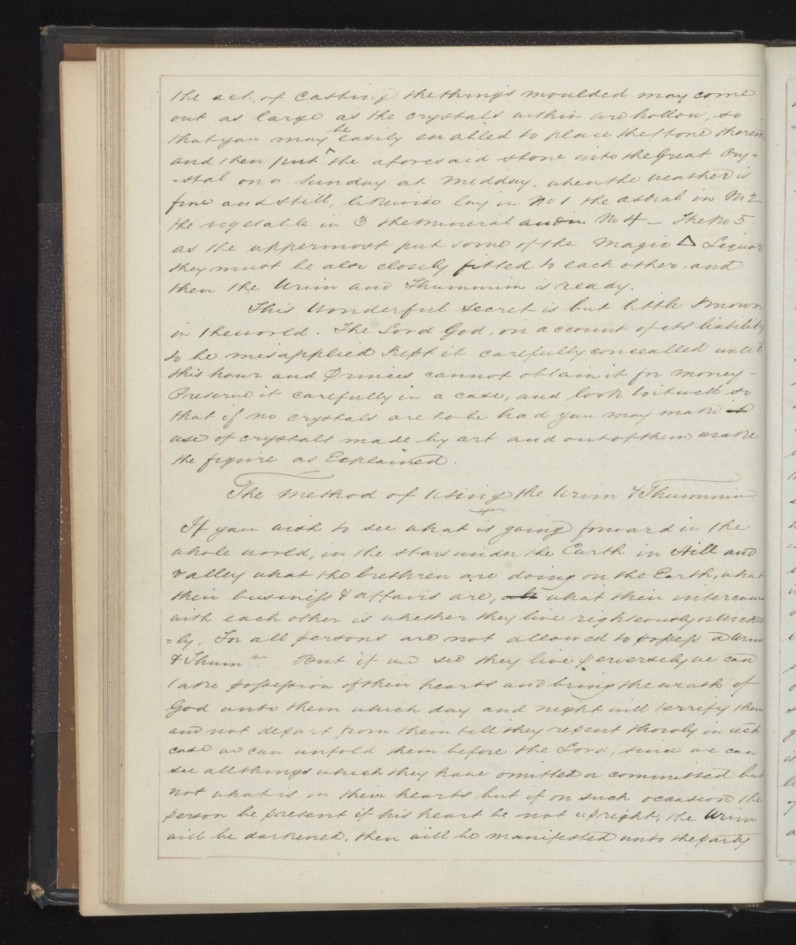 the act of Casting the things moulded may come
out as large as the crystals within are hollow, so
that you may be easily enalled to place the stone therein
and then put the aforesaid stone into the Great Cry=
=stal on a Sunday at Midday, when the weather is
fine and still, likewise lay in No 1 the astral in No 2
the vegetable in 3 the mineral in No 4 — The No 5
as the uppermost put some of the Magic △ Liquor
they must be also closely fitted to each other and
then the Urim and Thummim is ready.
This Wonderful Secret is but little known
in the world. The Lord God, on account of its liability
to be misapplied kept it carefully concealled until
this hour and Princes cannot obtain it for money -
Preserve it carefully in a case, and look to it well so
that if no crystals are to be had you may make
use of crystals made by art and out of them make
the figure as Explained.
The Method of Using the Urim & Thummim
If you wish to see what is going forward in the
whole world, in the stars under the Earth in Hill and
valley what the brethren are doing on the Earth, what
their business & affairs are, what their intercourse
with each other is whether they live righteously or wicked
=ly. For all persons are not allowed to possess a Urim
& Thumm. But if we see they live perversely we can
take possession of their hearts and bring the wrath of
God unto them which day and night will terrify them
and not depart from them till they repent thereby in such
case we can unfold them before the Lord, since we can
see all things which they have omitted or committed but
not what is in their hearts but if on such occasion the
person be present if his heart be not upright, the Urim
will be darkened, then will be manifested unto the party